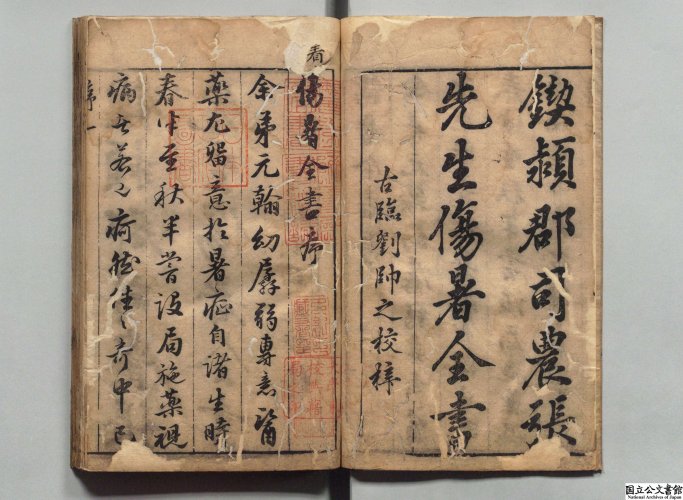 鍥潁郡司農張
先生傷暑全書
古臨劉帥之校梓
看
傷暑全書序
余弟元翰幼孱弱專意醫
藥尤留意於暑症自諸生時
春中至秋半嘗設局施藥視
病者若之
奇中已
序一
国立公文書館
National Archives of Japan